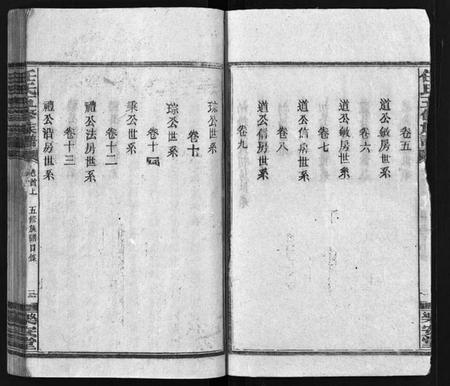 卷五
道公敏房世系
卷六
道公敏房世系
卷七
道公信房世系
卷八
道公信房世系
卷九
琮公世系
卷十
琮公世系
卷十一
秉公世系
卷十二
禮公法房世系
卷十三
禮公清房世系
卷首上
五修族譜目錄
三